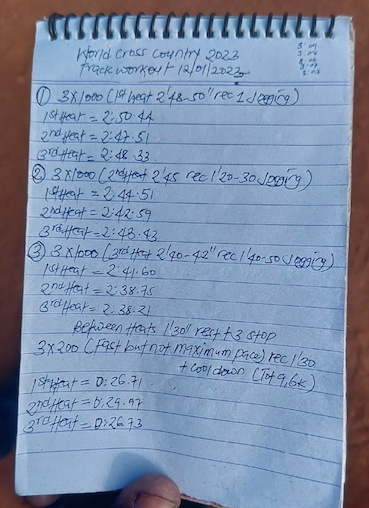 World Cross Country 2023
Track workout 12/01/2023
① 3x1000 (1st heat 2'48-50" rec 1 Jogging)
1st Heat = 2:50.44
2nd Heat = 2:47.51
3rd Heat = 2:48.33
② 3x1000 (2nd Heat 2'45 rec 1'20-30 Jogging)
1st Heat = 2:44.51
2nd Heat = 2:42.59
3rd Heat = 2:43.43
③ 3x1000 (3rd Heat 2'40-42" rec 1'40-50 Jogging)
1st Heat = 2:41.60
2nd Heat = 2:38.75
3rd Heat = 2:38.21
Between Heats 1'30" rest + 3 stop
3x200 (fast but not maximum pace) rec 1'30
+ cool down (Tot 9,6k)
1st Heat = 0:26.71
2nd Heat = 0:26.97
3rd Heat = 0:26.73